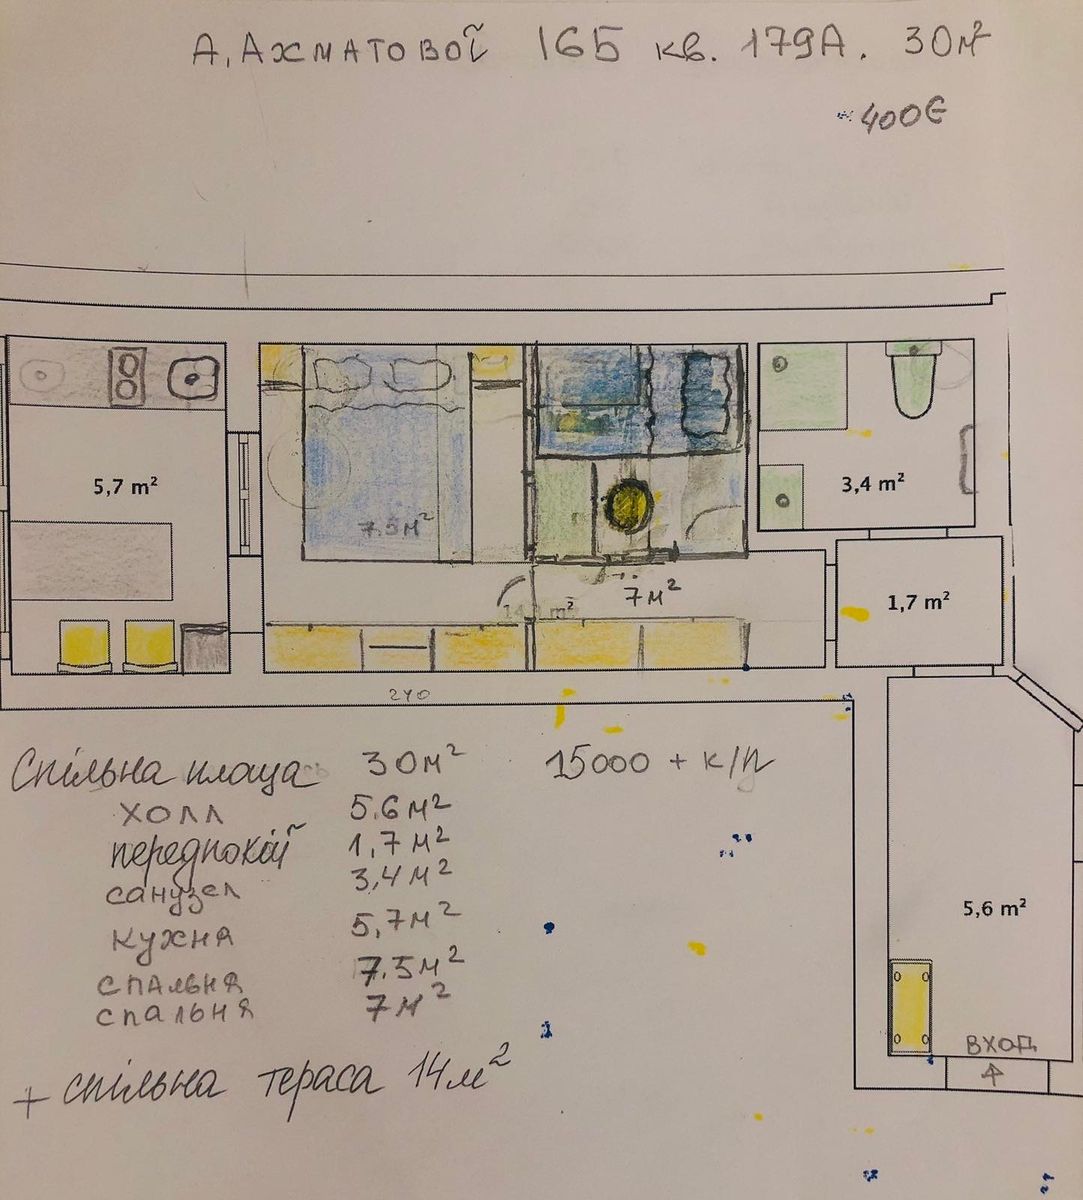 А. АХМАТОВОЇ 16Б кв. 179А. 30м²
400€
5,7 m²
7.5м²
3,4 m²
7м²
1,7 m²
270
Спільна площа 30м² 15000 + к/п
ХОЛЛ 5.6м²
передпокій 1,7м²
санузел 3,4м²
кухня 5,7м²
спальня 7.5м²
спальня 7м²
5,6 m²
ВХОД
+ спільна тераса 14м²